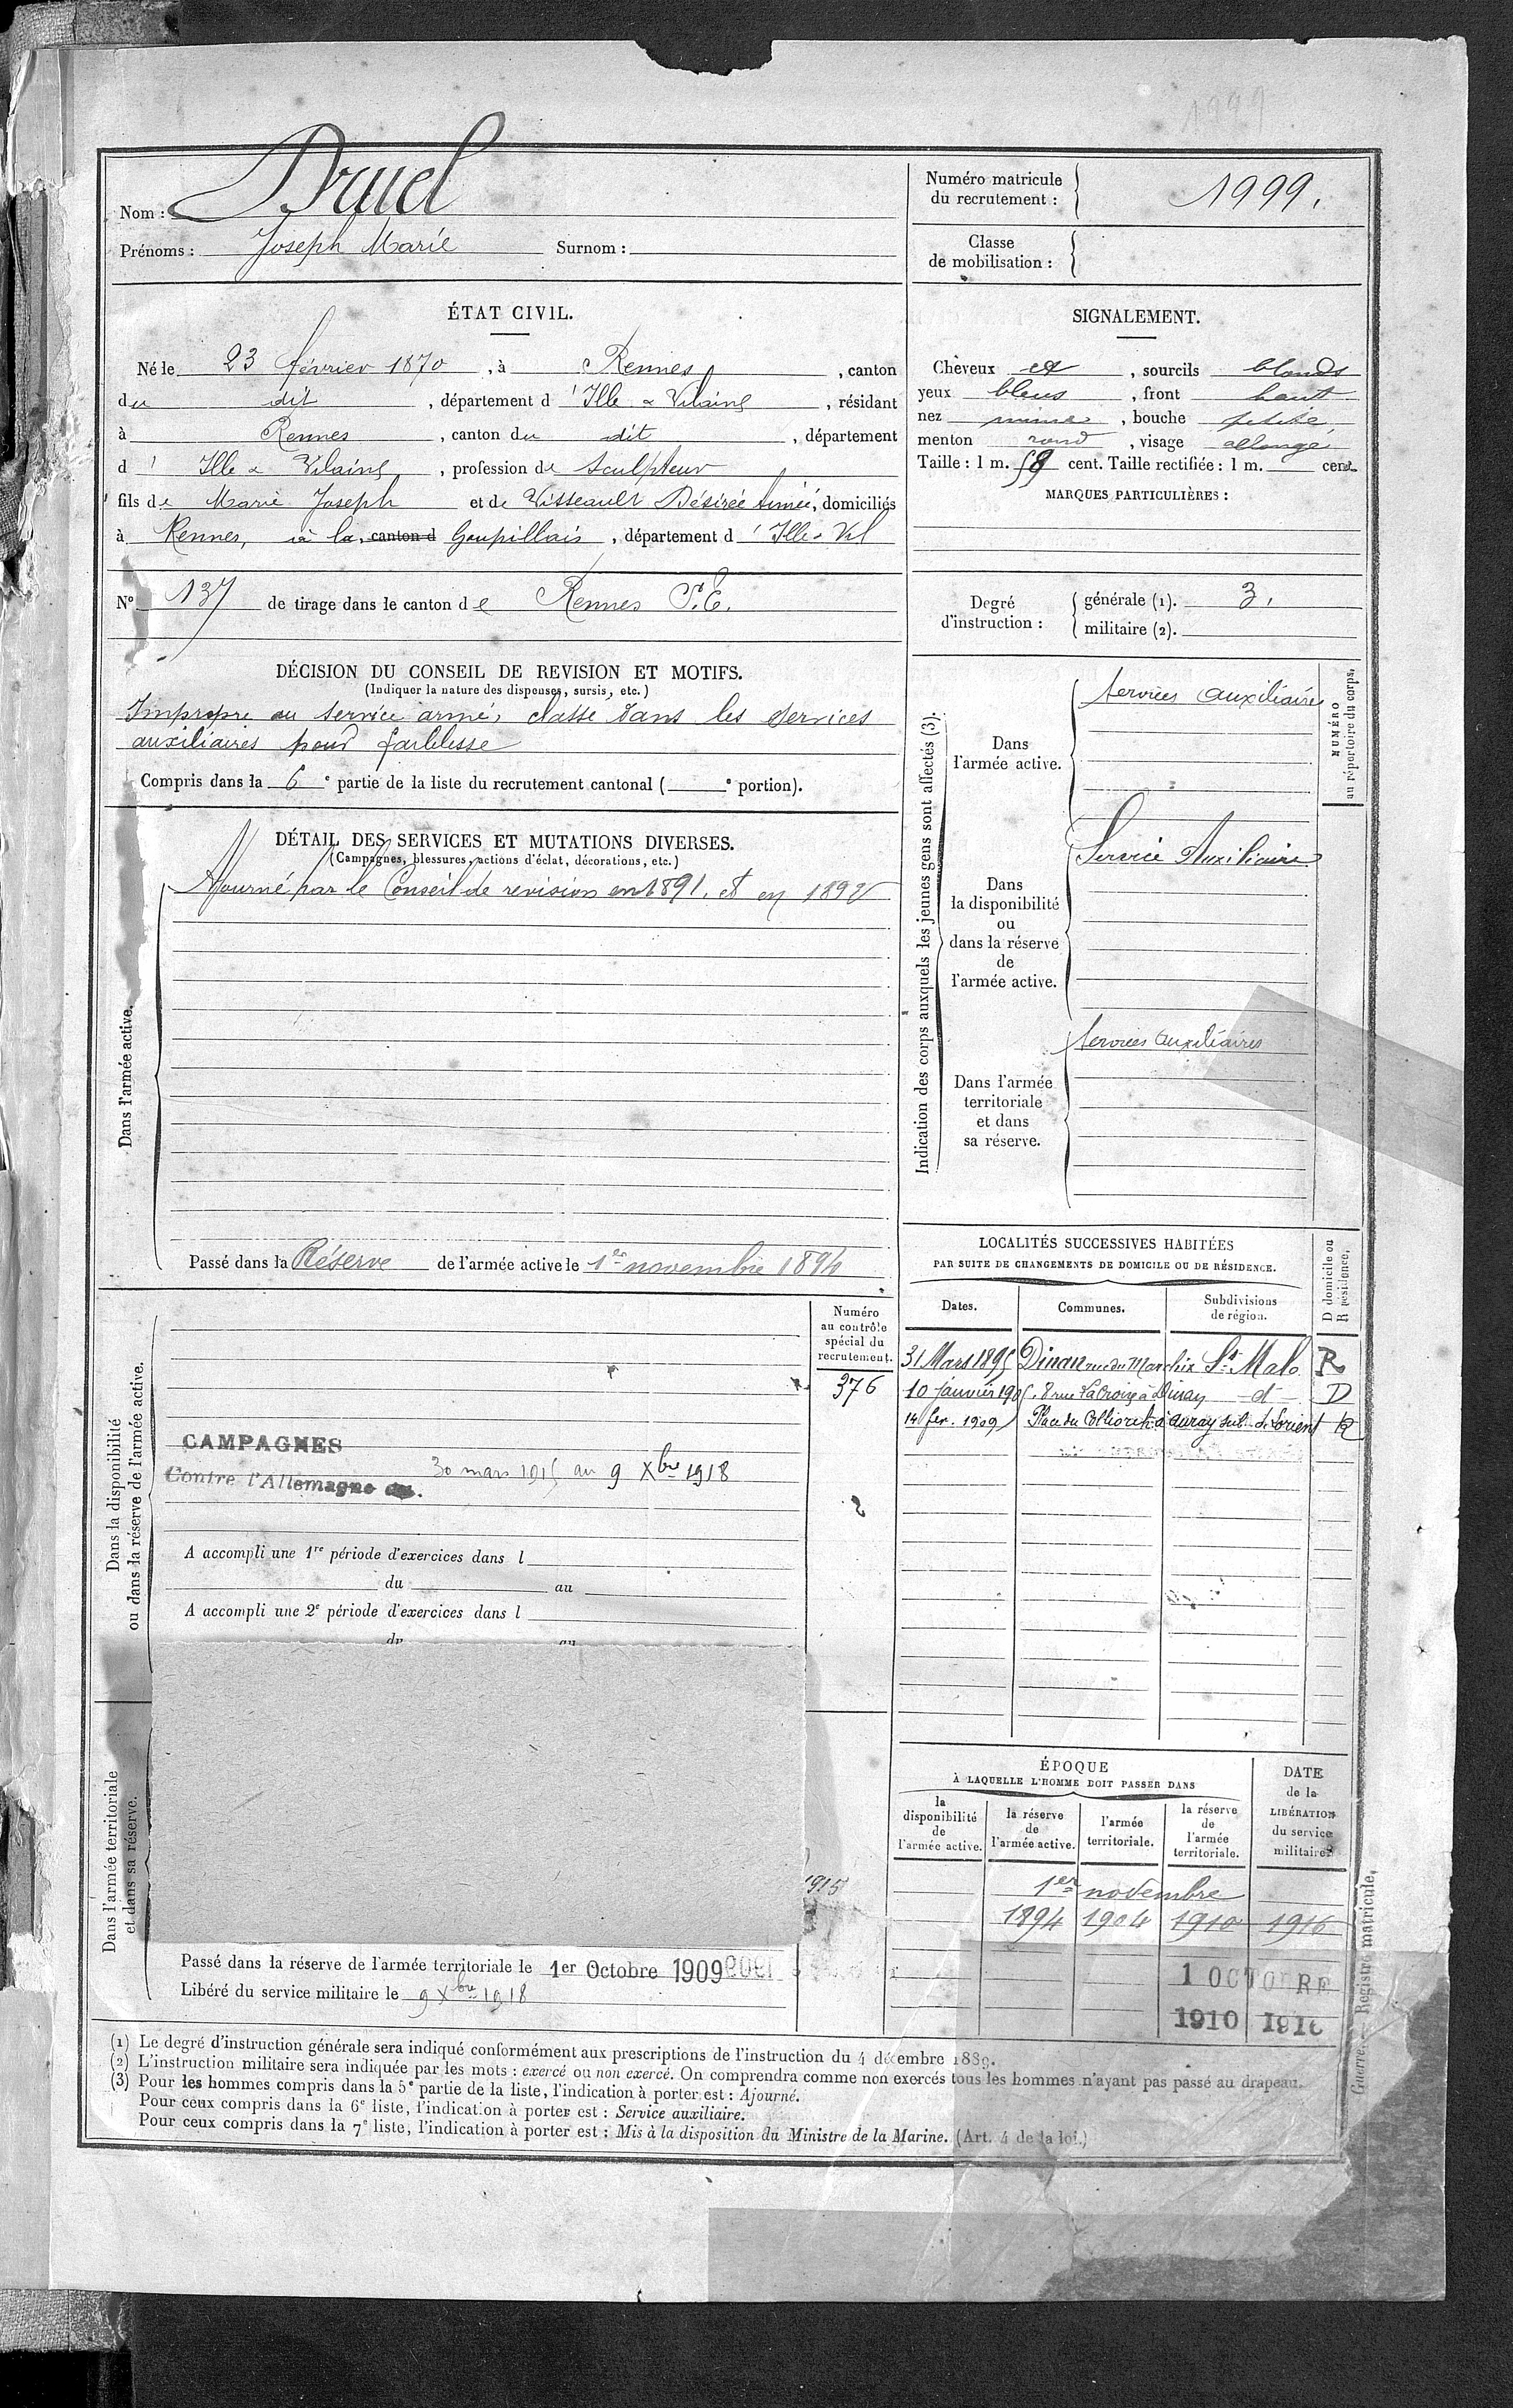 1999
Nom : Druel
Prénoms : Joseph Marie Surnom :
Numéro matricule du recrutement : 1999.
Classe de mobilisation :
ÉTAT CIVIL.
Né le 23 février 1870, à Rennes, canton
du dit, département d'Ille & Vilaine, résidant
à Rennes, canton du dit, département
d'Ille & Vilaine, profession de Sculpteur
fils de Marie Joseph et de Visseault Désirée Aimée, domiciliés
à Rennes, à la canton d Goupillais, département d'Ille & Vil
N° 137 de tirage dans le canton de Rennes S.E.
SIGNALEMENT.
Cheveux et, sourcils blonds
yeux bleus, front haut
nez, bouche petite,
menton rond, visage allongé
Taille : 1 m. 58 cent. Taille rectifiée : 1 m. cent.
MARQUES PARTICULIÈRES :
Degré d'instruction :
générale (1). 3.
militaire (2).
DÉCISION DU CONSEIL DE REVISION ET MOTIFS.
(Indiquer la nature des dispenses, sursis, etc.)
Impropre au service armé, classé dans les services
auxiliaires pour faiblesse
Compris dans la 6e partie de la liste du recrutement cantonal ( e portion).
DÉTAIL DES SERVICES ET MUTATIONS DIVERSES.
(Campagnes, blessures, actions d'éclat, décorations, etc.)
Dans l'armée active.
Ajourné par le Conseil de revision en 1891. et en 1892
Passé dans la Réserve de l'armée active le 1er novembre 1894
Indication des corps auxquels les jeunes gens sont affectés (3).
NUMÉRO au répertoire du corps.
Dans l'armée active.
Services auxiliaires
Dans la disponibilité ou dans la réserve de l'armée active.
Service Auxiliaire
Dans l'armée territoriale et dans sa réserve.
Services auxiliaires
LOCALITÉS SUCCESSIVES HABITÉES
PAR SUITE DE CHANGEMENTS DE DOMICILE OU DE RÉSIDENCE.
D domicile ou R résidence.
Dates. Communes. Subdivisions de région.
31 Mars 1895 Dinan rue du Marchix St Malo R
10 janvier 1905. 8 rue La Croix à Dinan - d - D
14 fev. 1909 Place du à Auray sub. de Lorient R
Dans la disponibilité
ou dans la réserve de l'armée active.
Numéro au contrôle spécial du recrutement.
376
CAMPAGNES
Contre l'Allemagne du 30 mars 1915 au 9 Xbre 1918
A accompli une 1re période d'exercices dans l
du au
A accompli une 2e période d'exercices dans l
du au
Dans l'armée territoriale
et dans sa réserve.
1915
Passé dans la réserve de l'armée territoriale le 1er Octobre 1909
Libéré du service militaire le 9 Xbre 1918
ÉPOQUE
À LAQUELLE L'HOMME DOIT PASSER DANS
DATE de la LIBÉRATION du service militaire.
la disponibilité de l'armée active.
la réserve de l'armée active.
l'armée territoriale.
la réserve de l'armée territoriale.
1er novembre
1894 1904 1910 1916
1 OCTOBRE
1910 1916
Guerre. — Registre matricule.
(1) Le degré d'instruction générale sera indiqué conformément aux prescriptions de l'instruction du 4 décembre 1889.
(2) L'instruction militaire sera indiquée par les mots : exercé ou non exercé. On comprendra comme non exercés tous les hommes n'ayant pas passé au drapeau.
(3) Pour les hommes compris dans la 5e partie de la liste, l'indication à porter est : Ajourné.
Pour ceux compris dans la 6e liste, l'indication à porter est : Service auxiliaire.
Pour ceux compris dans la 7e liste, l'indication à porter est : Mis à la disposition du Ministre de la Marine. (Art. 4 de la loi.)